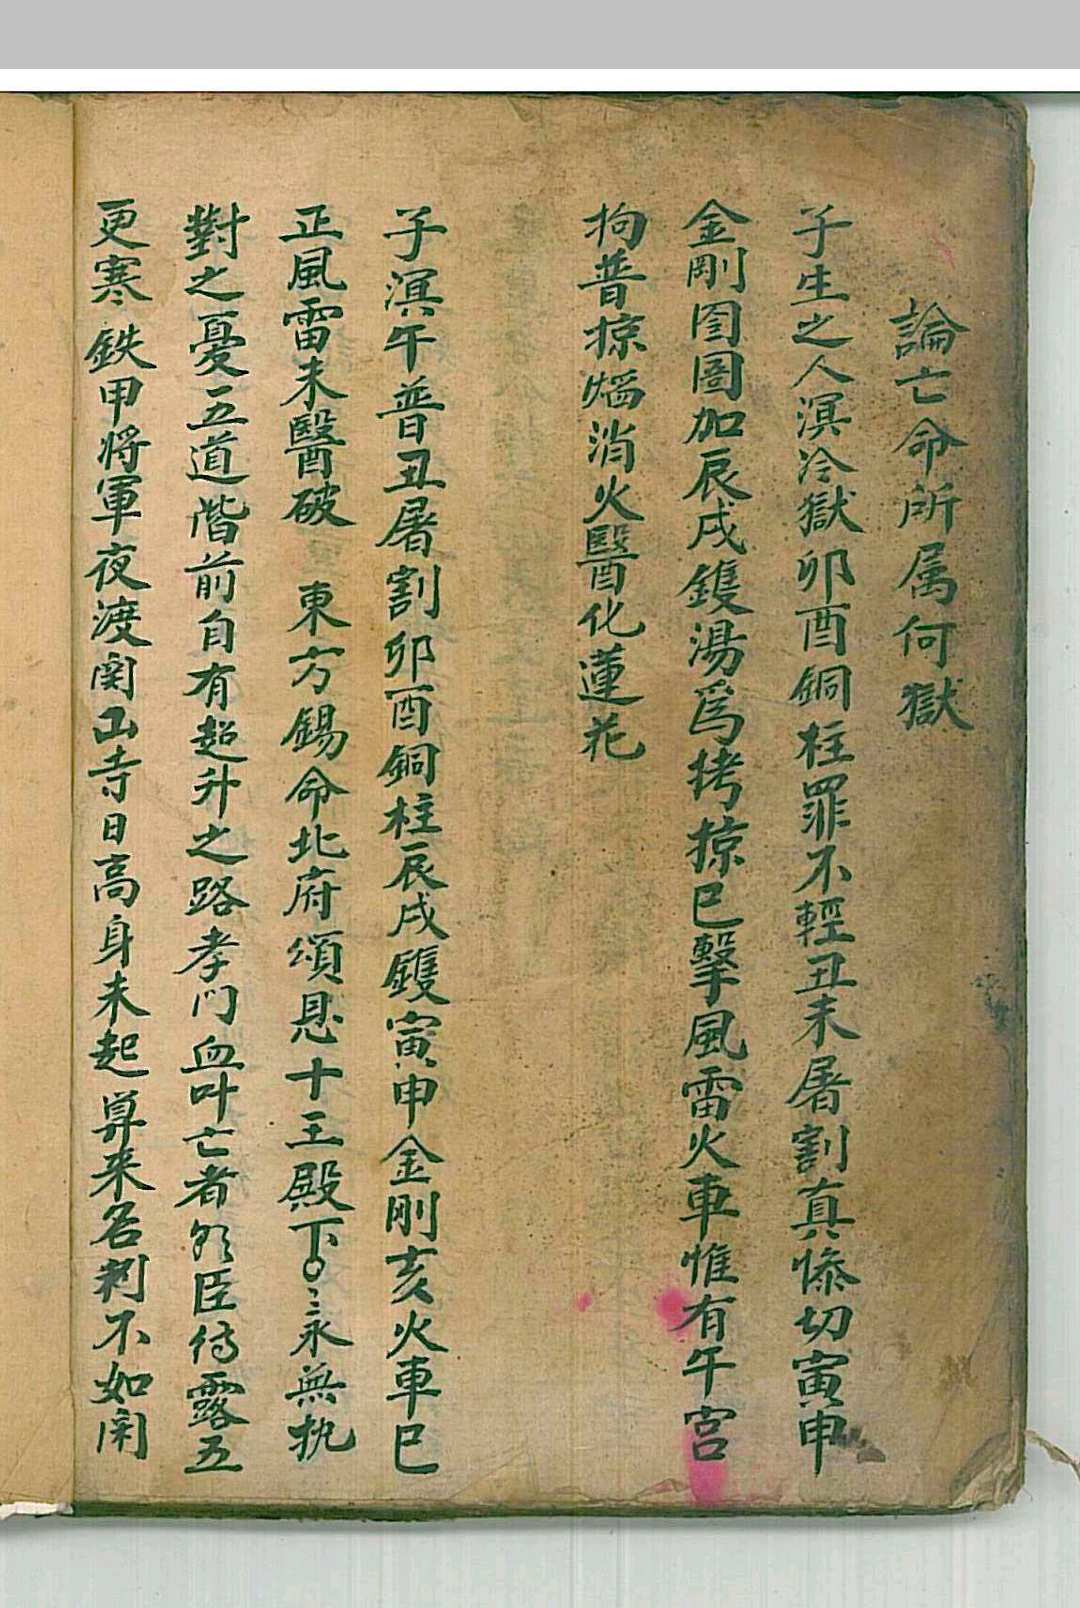 論亡命所属何獄
子生之人溟冷獄卯酉銅柱罪不輕丑未屠割真慘切寅申
金剛囹圄加辰戌鑊湯爲拷掠巳擊風雷火車惟有午宮
拘普掠焰消火醫化蓮花
子溟午普丑屠割卯酉銅柱辰戌鑊寅申金剛亥火車巳
正風雷未醫破 東方錫命北府頌恩十王殿下永無执
對之憂五道階前自有超升之路孝门血叶亡者臣待露五
更寒鉄甲将軍夜渡関山寺日高身未起算来名利不如闲